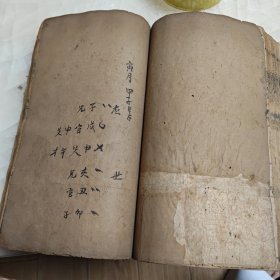 寅月 甲子日
兄子 〃 应
父申官戌
才午父申
兄亥 世
官丑 〃
子卯